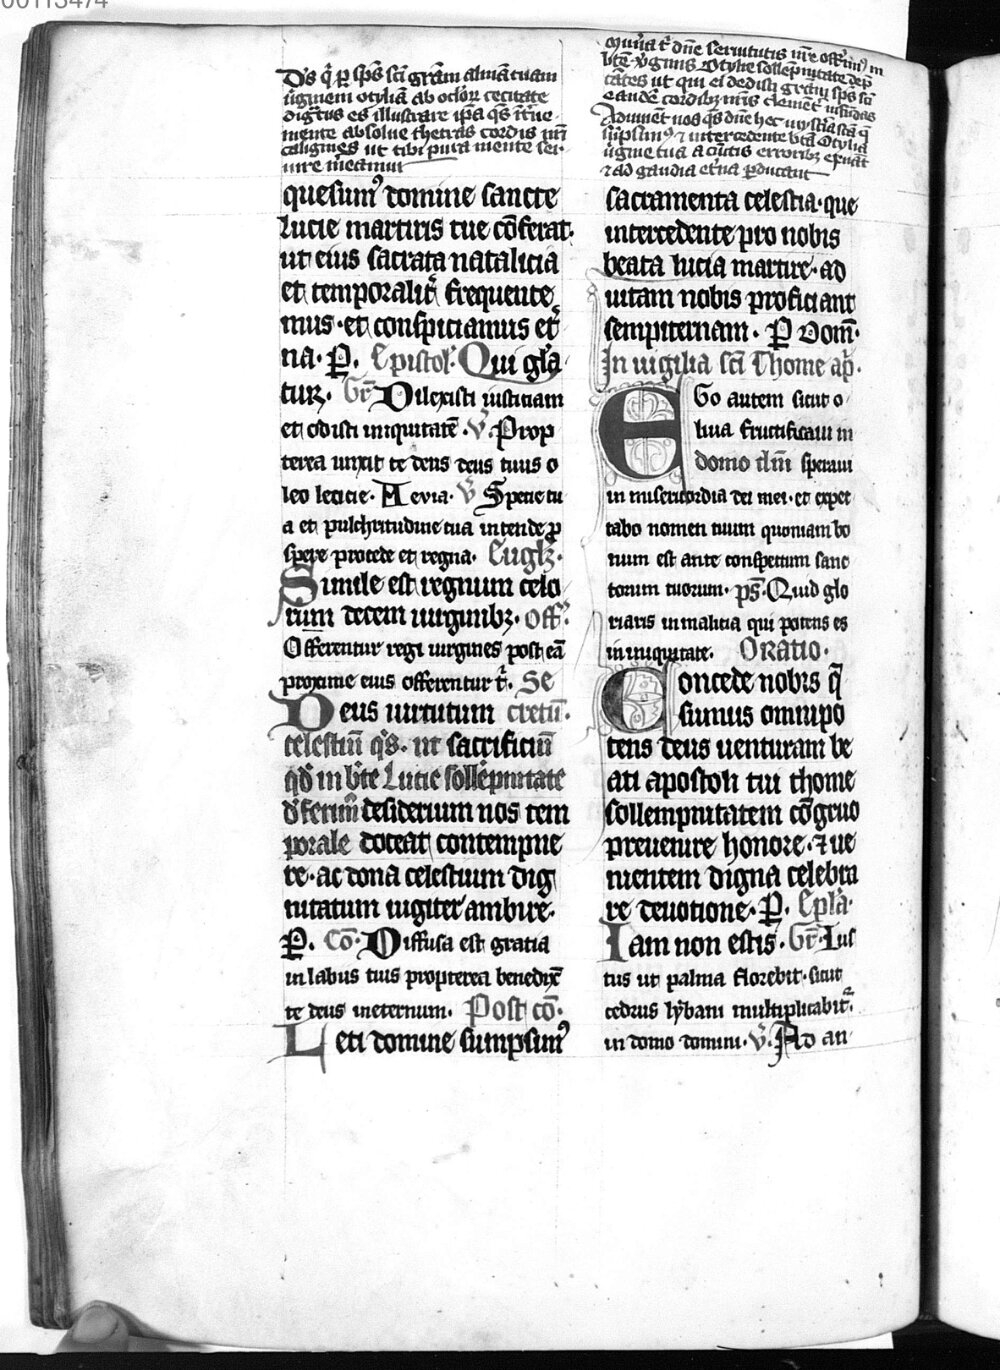 00113474
Ds q̄ p̄ sp̄s sc̄i gr̄am almā tuam
ūginem otyliā ab oclor̄ cecitate
digt̄us es illustrare ip̄a qs̄ īt̄ue
mente absolue thetras cordis nr̄i
caligines ut tibi pura mente ser
uire
quesumꝰ domine sancte
lucie martiris tue cōferat·
ut eius sacrata natalicia
et temporalit̄ frequente
mus·et conspiciamus et̄
na· P̄. Epistol̄· Qui gl̄a
tur. Gr̄ Dilexisti iusticiam
et odisti iniquitatē· V̄. Prop
terea unxit te deus deus tuus o
leo leticie· Aevia· V̄ Specie tu
a et pulchritudine tua intende p̄
spere procede et regna. Eugl̄·
Simile est regnum celo
rum decem uirginibꝫ· Off̄·
Offerentur regi uirgines post eā
proxime eius offerentur t̄. Se
Deus uirtutum cretū·
celestiū qs̄· ut sacrificiū
qd̄ in bt̄e Lucie sollēpnitate
d̄ferim̄ desiderium nos tem
porale doceat contempne
re·ac dona celestium dig
nitatum iugiter ambire·
P̄. Cō· Diffusa est gratia
in labiis tuis propterea benedix̄
te deus ineternum. Post cō·
Leti domine sumpsimꝰ
Mun̄a t̄ dn̄e seruitutis nr̄e offerimꝰ in
bt̄e v̄ginis Otylie sollēpnitate dep̄
cātes ut qui ei dedisti gr̄am sp̄s sc̄i
eandē cordibꝫ nr̄is clement̄ infundas
Adiuuet nos qs̄ dn̄e hec mysteria scā q̄
sūpsimꝰ ⁊ intercedente bt̄a Otylia
ūgine tua a cūctis erroribꝫ exuat
⁊ ad gaudia et̄na p̄ducant
sacramenta celestia·que
intercedente pro nobis
beata lucia martire·ad
uitam nobis proficiant
sempiternam· P̄ Dom̄·
In uigilia sc̄i Thome ap̄·
EGo autem sicut o
liua fructificaui in
domo dn̄i speraui
in misericordia dei mei·et expec
tabo nomen tuum quoniam bo
num est ante conspectum sanc
torum tuorum· ps̄·Quid glo
riaris in malicia qui potens es
in iniquitate. Oratio·
Concede nobis q̄
sumus omnipo
tens deus uenturam be
ati apostoli tui thome
sollempnitatem cōgruo
preuenire honore·⁊ ue
nientem digna celebra
re deuotione· P̄. Epl̄a·
Iam non estis· Gr̄· Ius
tus ut palma florebit·sicut
cedrus lybani multiplicabit̄·
in domo domini· V̄. Ad an